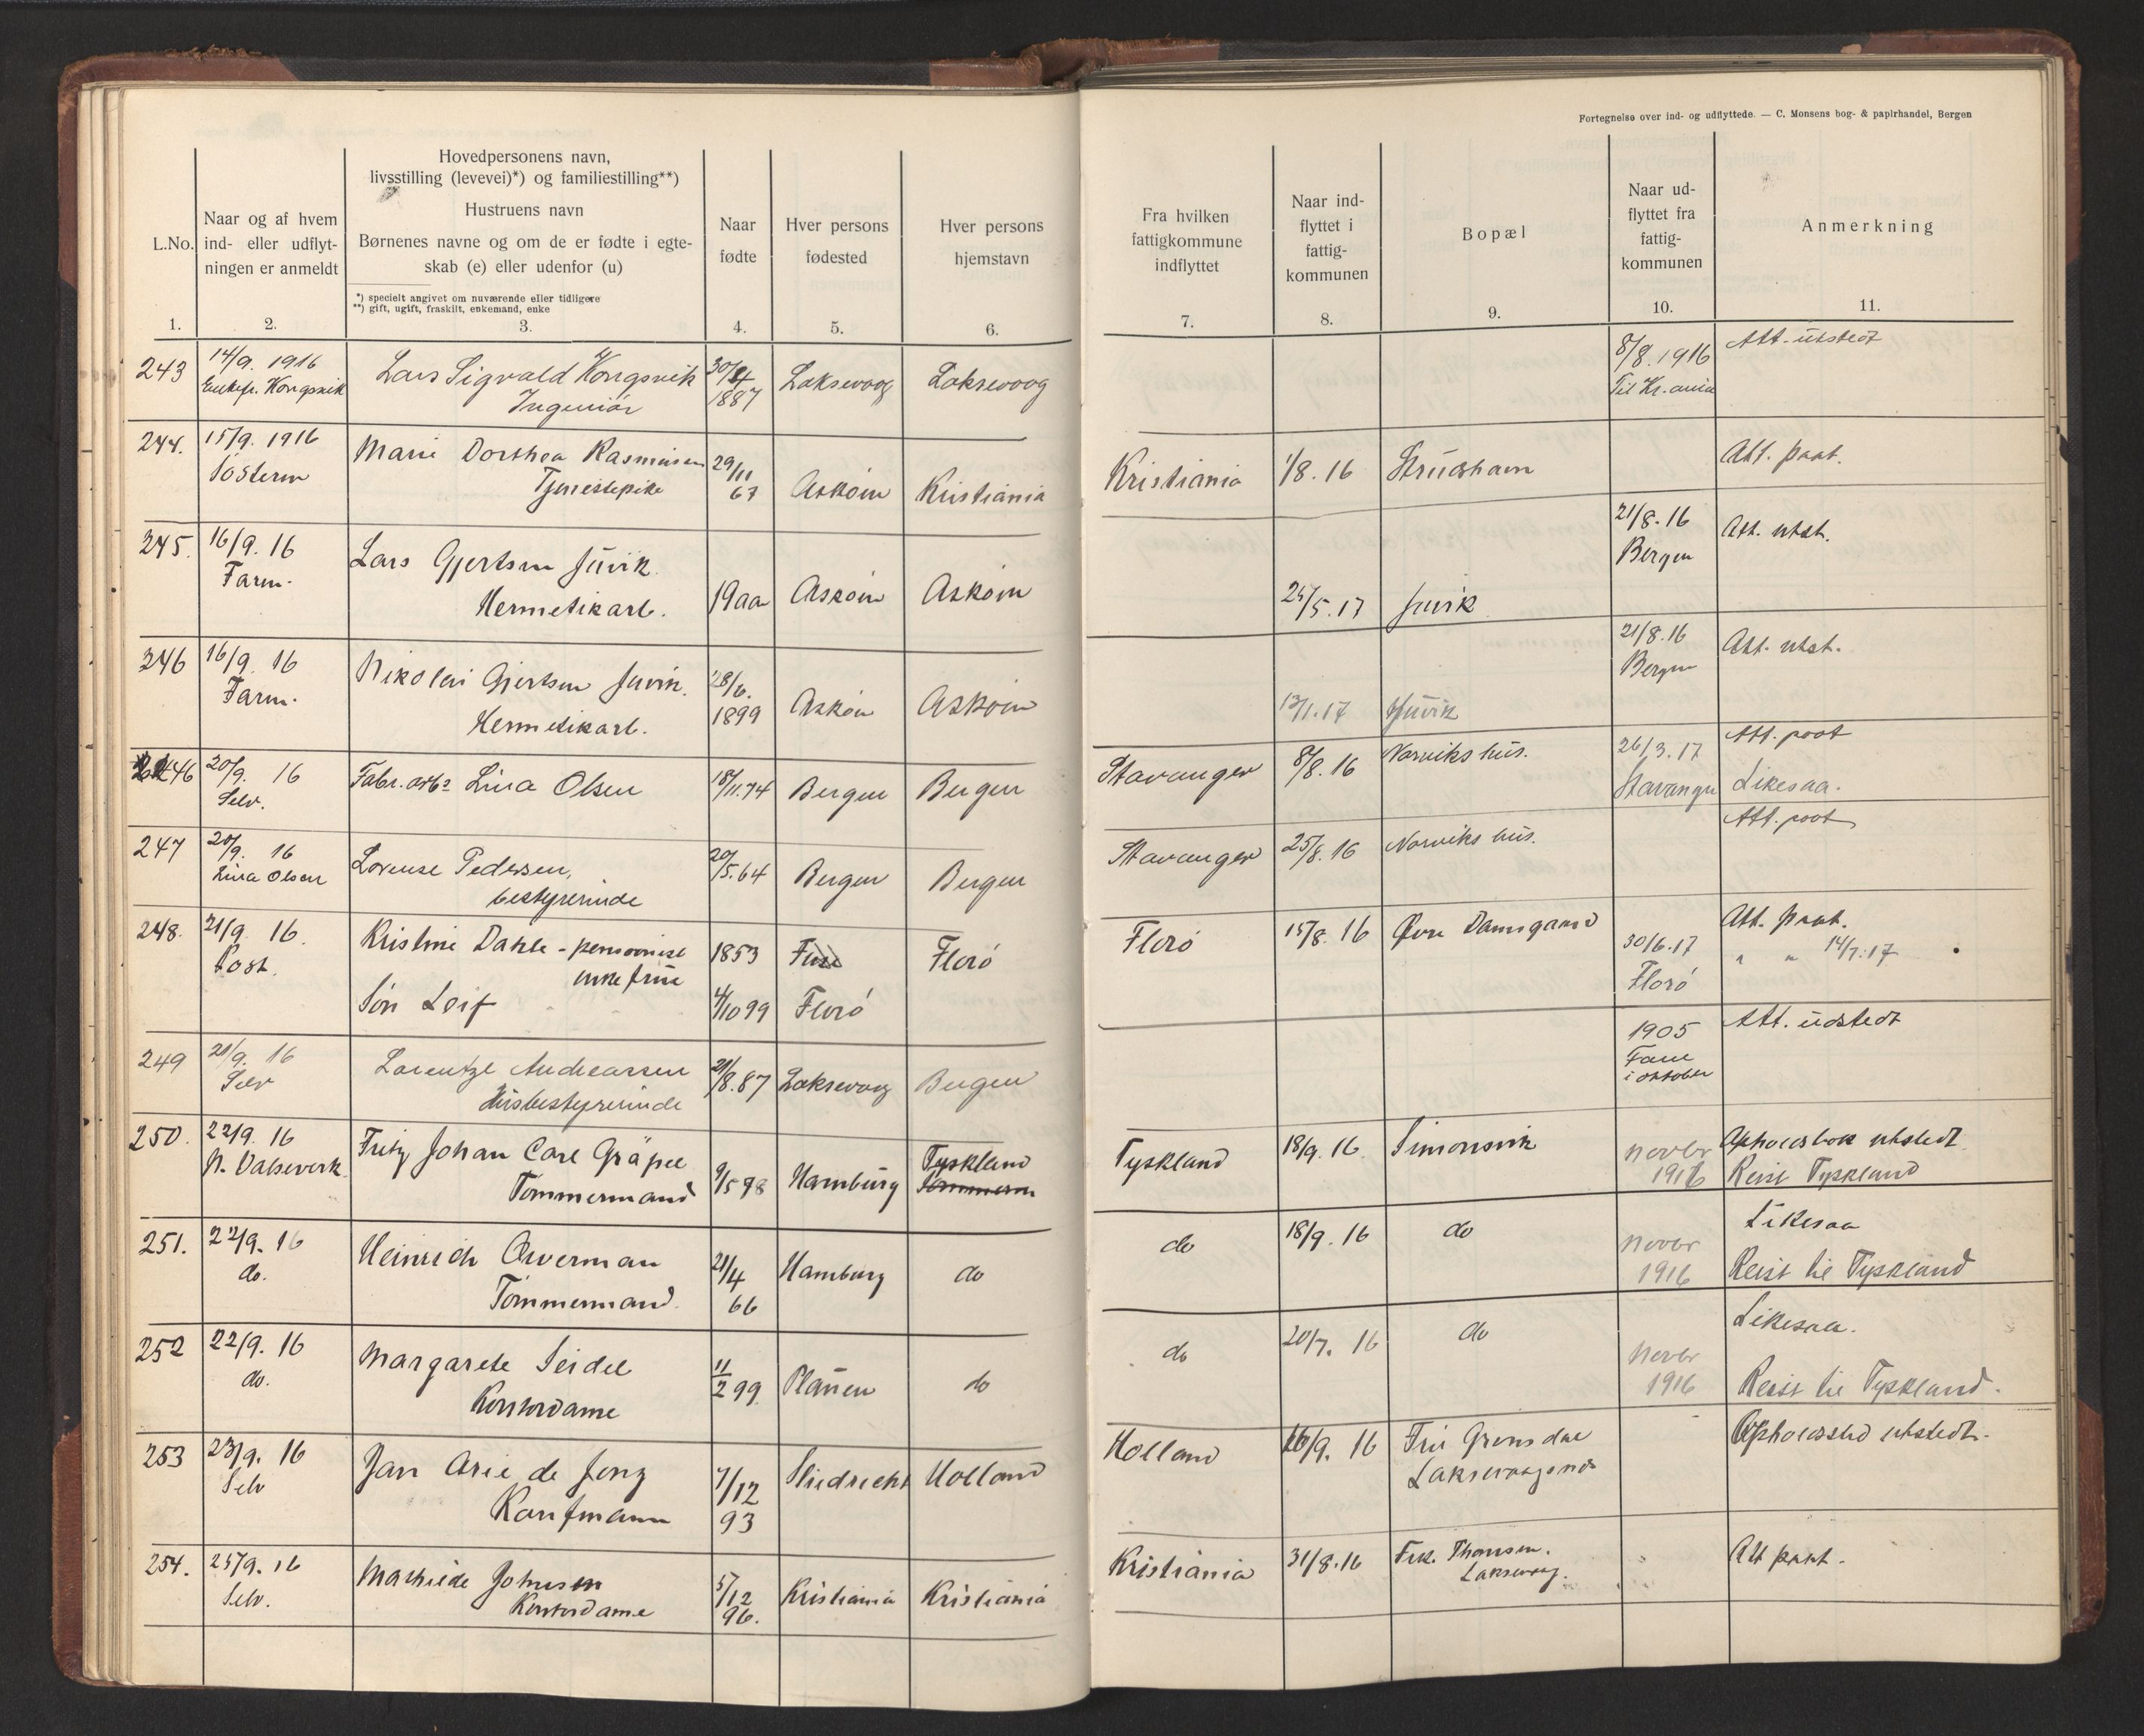 Fortegnelse over ind- og udflyttede. — C. Monsens bog- & papirhandel, Bergen
L.No.
1.
Naar og af hvem
ind- eller udflyt-
ningen er anmeldt
2.
Hovedpersonens navn,
livsstilling (levevei)*) og familiestilling**)
Hustruens navn
Børnenes navne og om de er fødte i egte-
skab (e) eller udenfor (u)
*) specielt angivet om nuværende eller tidligere
**) gift, ugift, fraskilt, enkemand, enke
3.
Naar
fødte
4.
Hver persons
fødested
5.
Hver persons
hjemstavn
6.
Fra hvilken
fattigkommune
indflyttet
7.
Naar ind-
flyttet i
fattig-
kommunen
8.
Bopæl
9.
Naar ud-
flyttet fra
fattig-
kommunen
10.
Anmerkning
11.
243
14/9. 1916
Enkefr. Kongsvik
Lars Sigvald Kongsvik
Ingeniør
30/4
1887
Laksevaag
Laksevaag
8/8. 1916
Til Kr.ania
Att. utstedt
244.
15/9. 1916
Søsteren
Marie Dorthea Rasmusen
Tjenestepike
29/11
67
Askøen
Kristiania
Kristiania
1/8. 16
Strudshavn
Att. paat.
245.
16/9. 16
Faren.
Lars Gjertsen Juvik
Hermetikarb.
19aa
Askøen
Askøen
24/5. 17
Juvik
21/8. 16
Bergen
Att. utst.
246
16/9. 16
Faren.
Nikolai Gjertsen Juvik.
Hermetikarb.
28/6.
1899
Askøen
Askøen
13/1. 17
Juvik
21/8. 16
Bergen
Att. utst.
246
20/9. 16
Selv.
Fabr. arb. Lina Olsen
18/11. 74
Bergen
Bergen
Stavanger
8/8. 16
Norviks hus.
26/3. 17
Stavanger
Att. paat
Likesaa.
247
20/9. 16
Lina Olsen
Lorense Pedersen,
bestyrerinde
20/5. 64
Bergen
Bergen
Stavanger
25/8. 16
Norviks hus.
Att. paat
248.
21/9. 16.
Post.
Kristine Dahle - pensionist
enkefrue
Søn Leif
1853
4/10 99
Florø
Florø
Florø
15/8. 16
Øvre Damsgaard
30/6. 17
Florø
Att. paat.
" " 14/7. 17
249
21/9. 16
Selv
Lorentze Andreassen
Husbestyrerinde
21/8. 87
Laksevaag
Bergen
1905
Fane
i oktober
Att. udstedt
250.
22/9. 16
N. Valseverk
Fritz Johan Carl Gräpel
Tømmermand
9/5 98
Hamburg
Tyskland
Tyskland
18/9. 16.
Simonsvik
Novbr
1916
Opholdsbok utstedt
Reist Tyskland
251.
22/9. 16
do.
Heinrich Awerman
Tømmermand.
21/4
66
Hamburg
do
do
18/9. 16
do
Novbr
1916
Likesaa
Reist til Tyskland
252
22/9. 16
do.
Margarete Seidel
Kontordame
11/2 99
Plauen
do
do
20/7. 16
do
Novbr
1916
Likesaa.
Reist til Tyskland.
253
23/9. 16
Selv
Jan Arie de Jong
Kaufmann
7/12
93
Sliedrecht
Holland
Holland
16/9. 16
Fru Grønsdal
Laksevaagsnes
Opholdssted utstedt.
254.
25/9. 16
Selv.
Mathilde Johnsen
Kontordame
5/12
96.
Kristiania
Kristiania
Kristiania
31/8. 16
Frk. Thomsen.
Laksevaag.
Att paat.